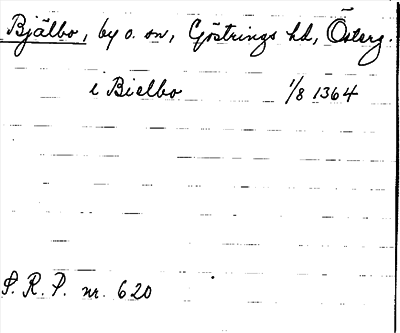 Bjälbo, by o. sn, Göstrings hd, Österg.
i Bielbo 1/8 1364
S. R. P. nr. 620